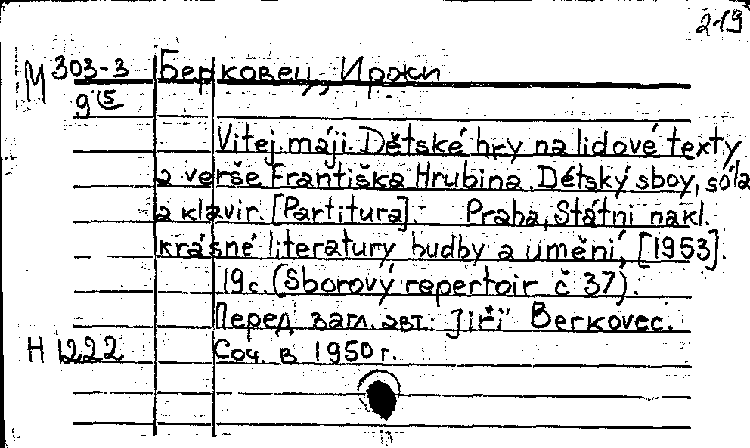 219
М 303-3 Берковец, Иржи
9(5
Vitej máji. Dětské hry na lidové texty
a verše Františka Hrubina. Dětský sboy, sóla
a klavir. [Partitura].- Praha, Státni nakl.
krásné literatury hudby a uměni, [1953].
19с. (Sborový repertoir č 37).
Перед загл. авт.: Jiři Berkovec.
Н 1222 Соч. в 1950г.